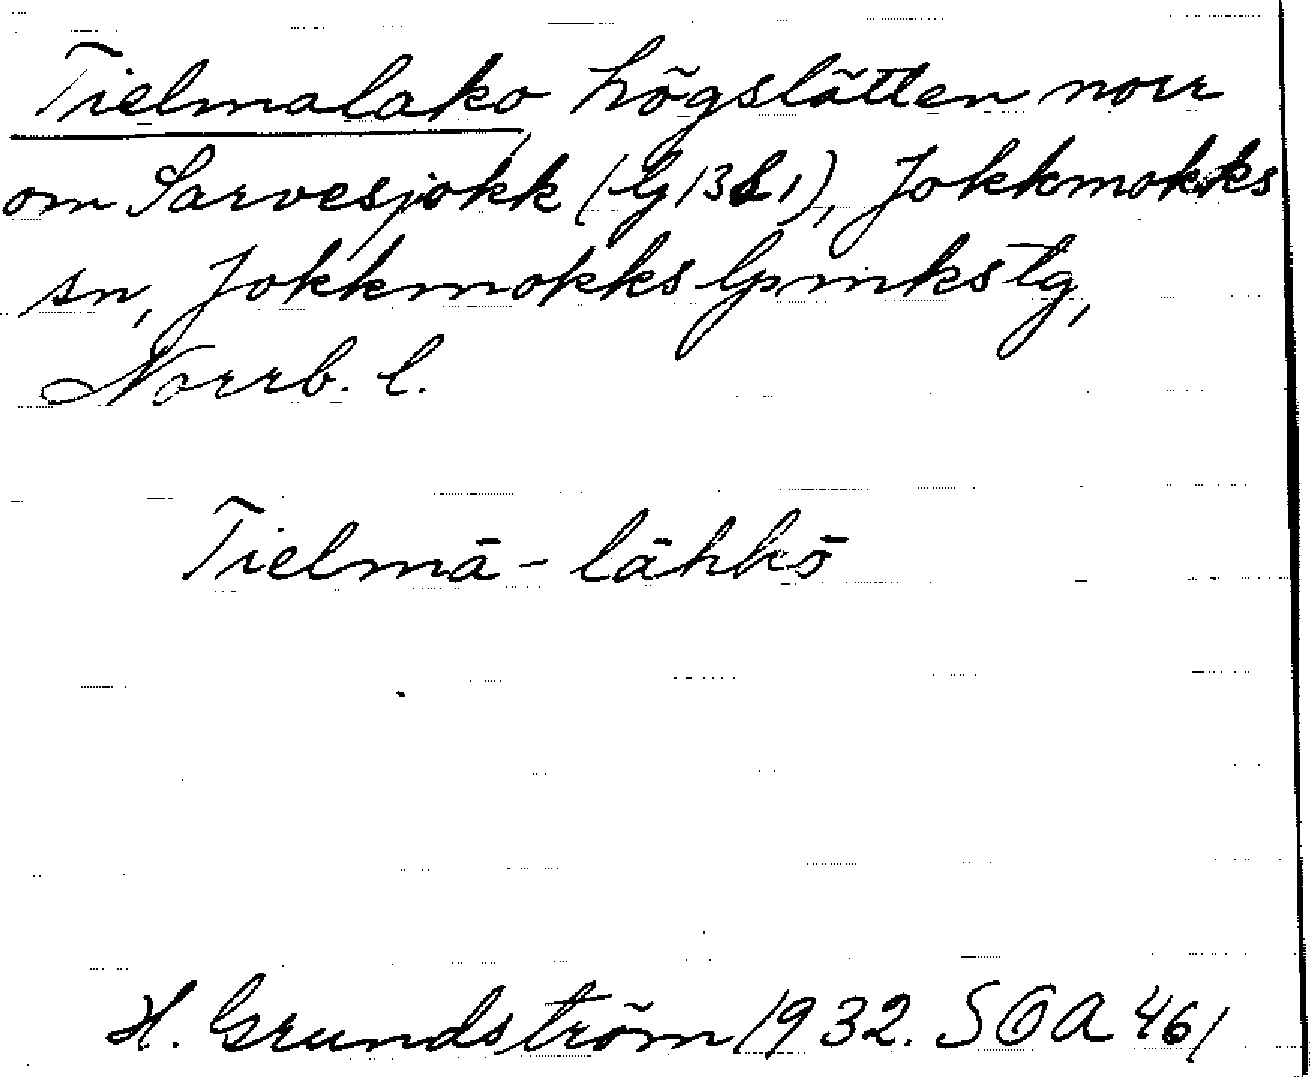 Tielmalako högslätten norr
om Sarvesjokk (lg 13 l 1), Jokkmokks
sn, Jokkmokks lpmkstg,
Norrb. l.
Tielmā-lāhkō
H. Grundström 1932. SOA 461